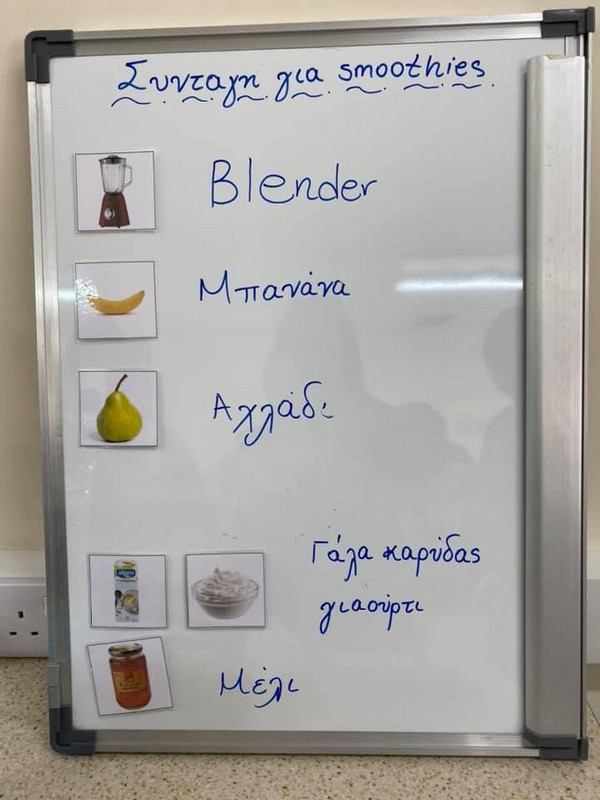 Συνταγη για smoothies
Blender
Μπανάνα
Αχλάδι
Γάλα καρύδας
γιαούρτι
Μέλι